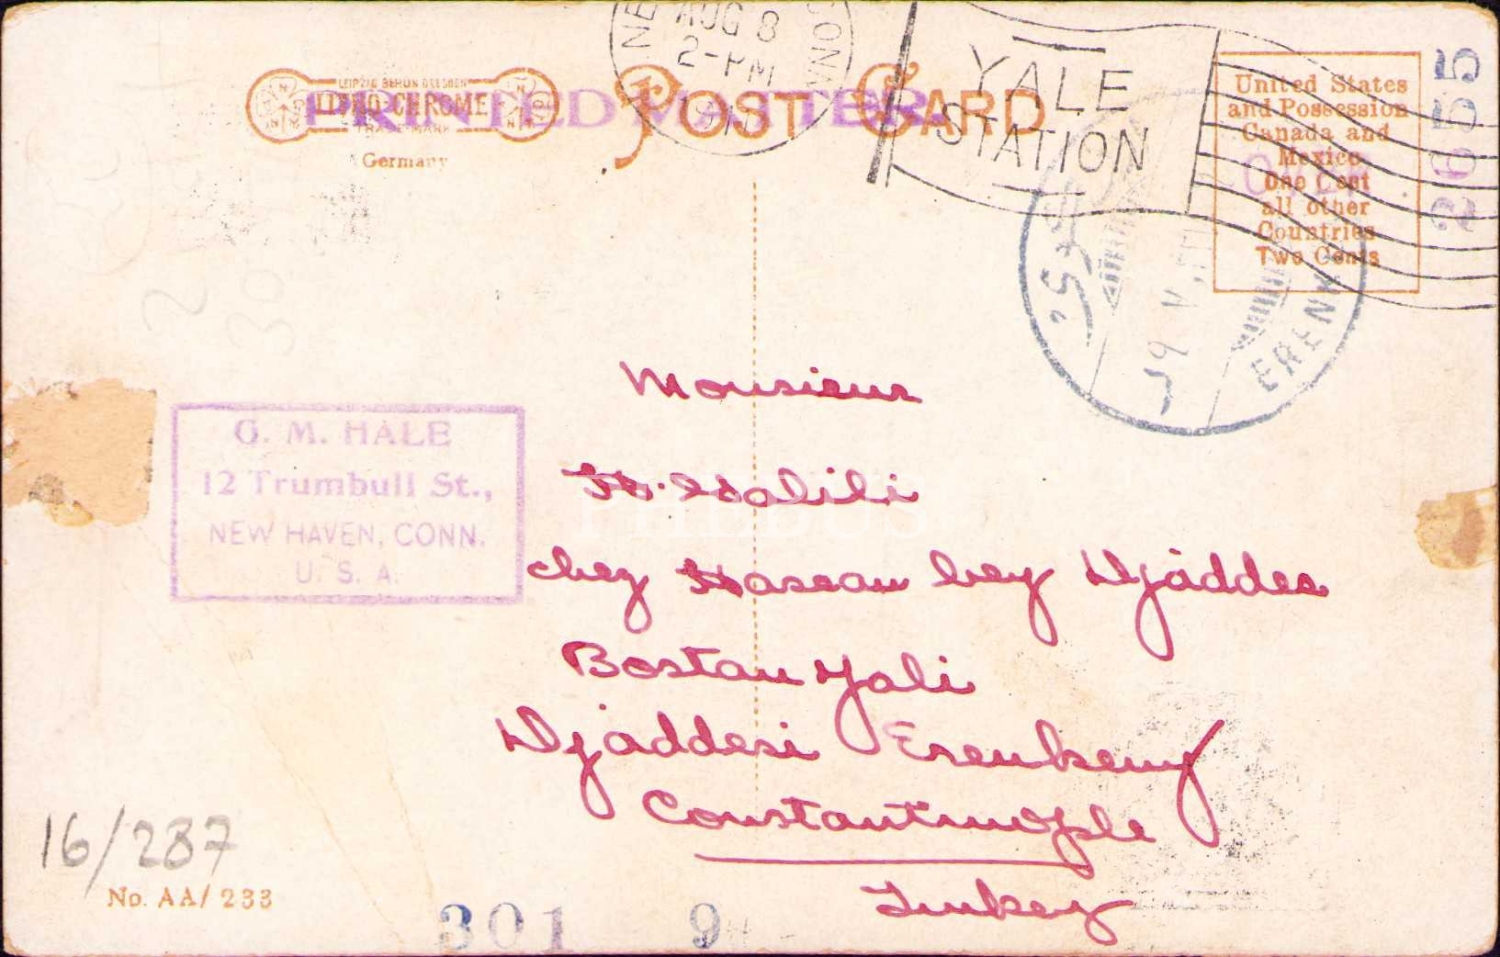 AUG 8
2-PM
YALE
STATION
LEIPZIG BERLIN DRESDEN
LITHO-CHROME
TRADE MARK
Germany
PRINTED MATTER
POST CARD
United States
and Possession
Canada and
Mexico
One Cent
all other
Countries
Two Cents
2655
ERENK
G. M. HALE
12 Trumbull St.,
NEW HAVEN, CONN.
U. S. A.
Monsieur
H. Halili
chez Hassan bey Djaddes
Bostan Yali
Djaddesi Erenkeuy
Constantinople
Turkey
16/287
No. AA/ 233
301 9